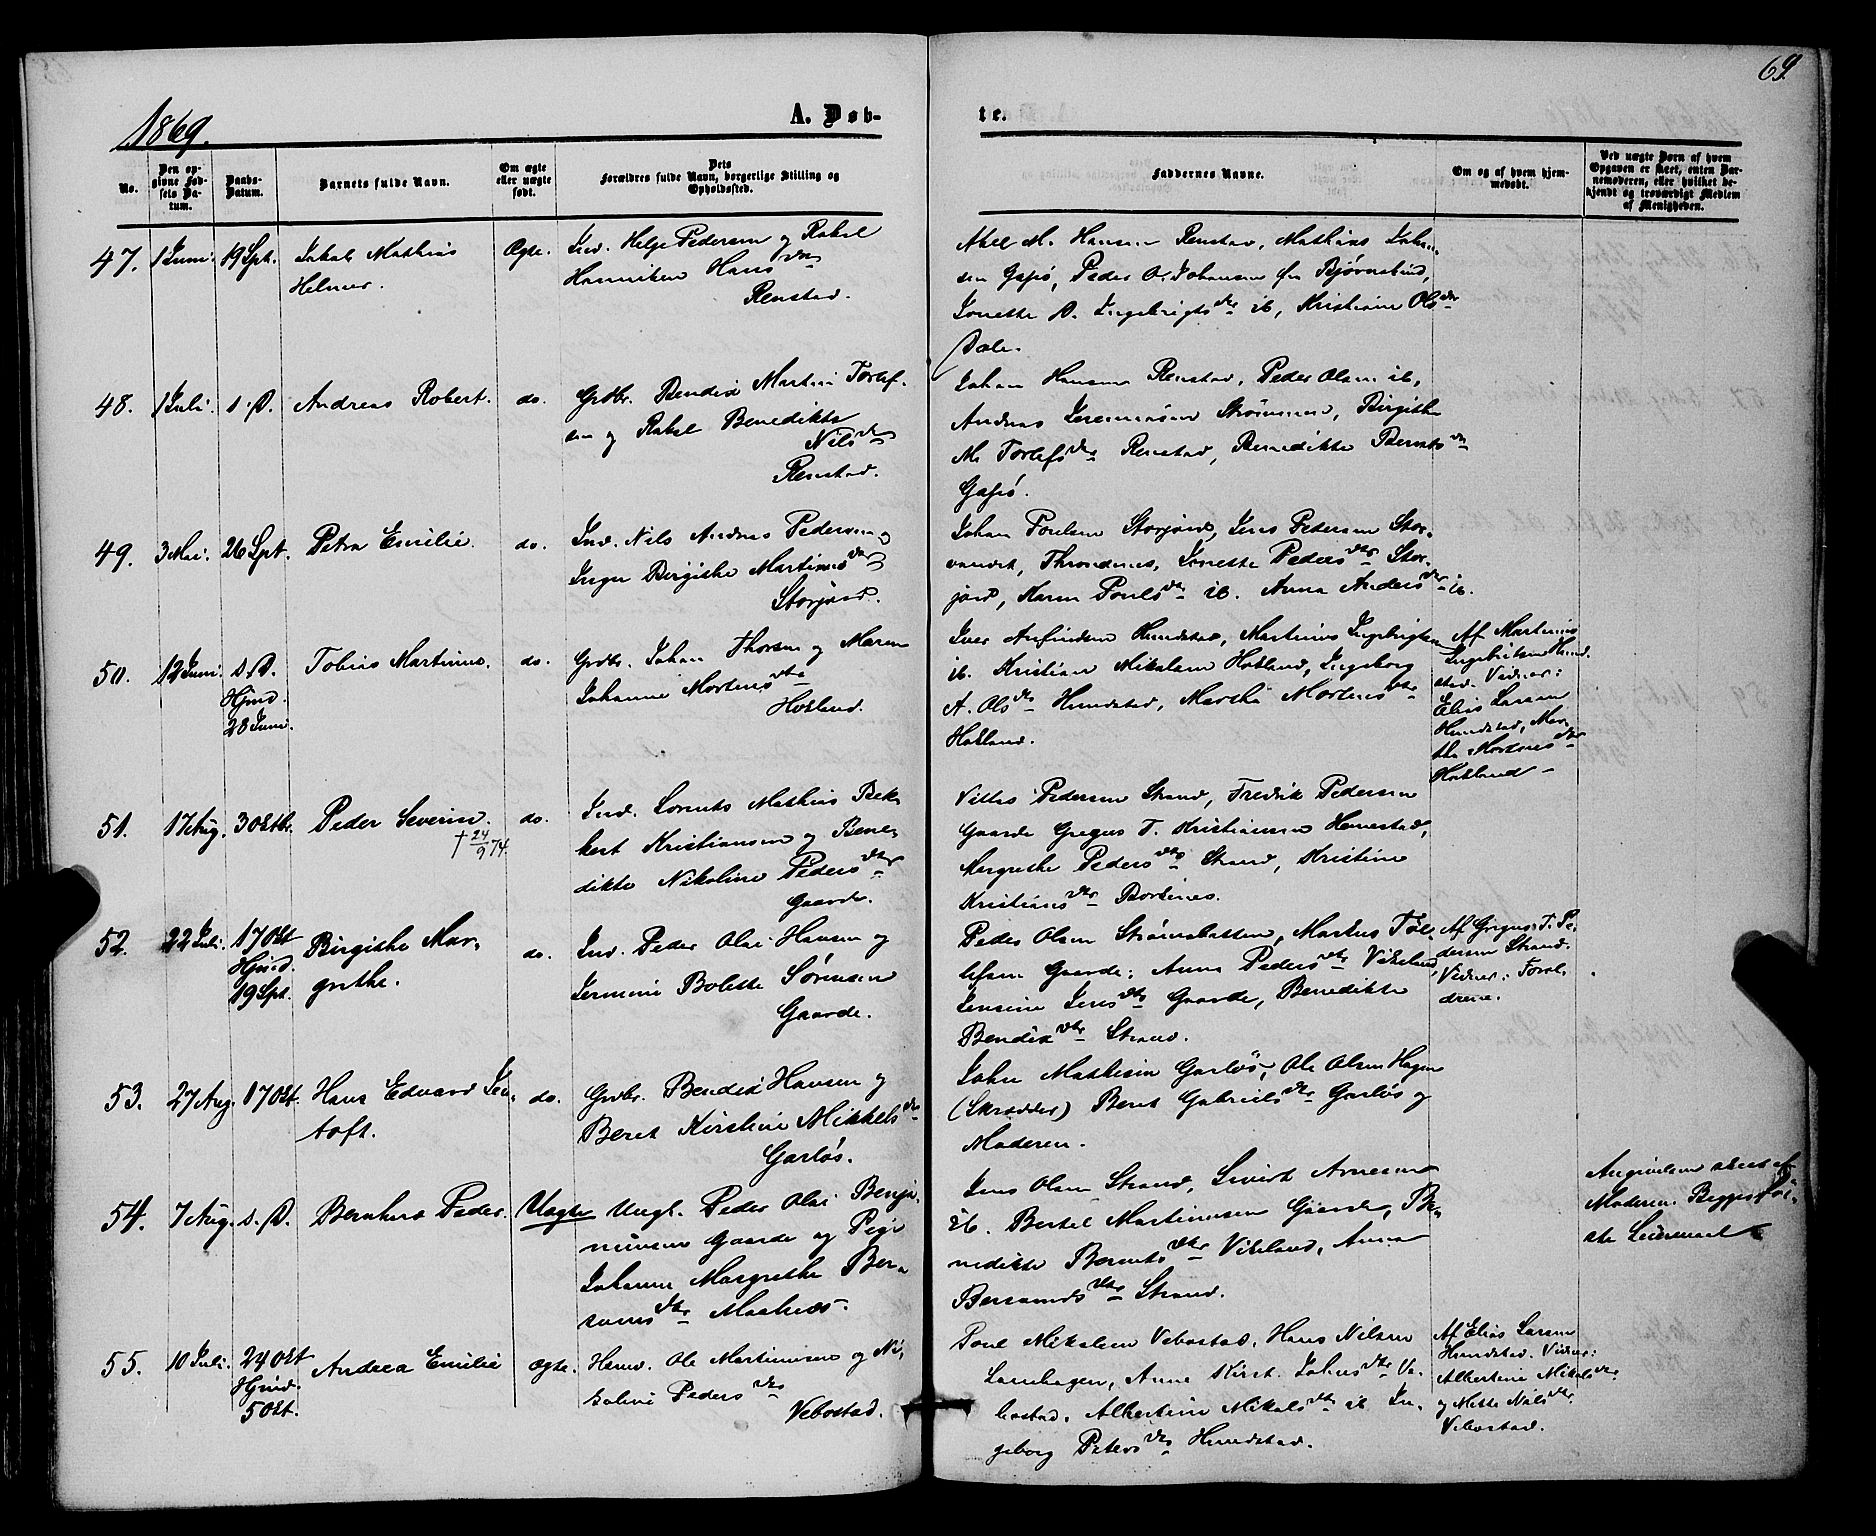 69.
1869.
A. Døb-
te.
No.
Den op-
givne Fød-
sels Da-
tum.
Daabs-
Datum.
Barnets fulde Navn.
Om ægte
eller uægte
født.
Dets
Forældres fulde Navn, borgerlige Stilling og
Opholdssted.
Faddernes Navne.
Om og af hvem hjem-
medøbt.
Ved uægte Børn af hvem
Opgaven er skeet, enten Bar-
nemoderen, eller hvilket be-
kjendt og troværdigt Medlem
af Menigheden.
47.
1 Juni.
19 Spt.
Jakob Mathias
Helmer.
Ægte.
Ind. Helge Pedersen og Rakel
Hanniken Hansdtr
Renstad.
Axel M. Hansen Renstad, Mathias Johan-
sen Gapø, Peder O. Johansen fra Bjørnebind,
Jonette D. Ingebrigtsdtr ib, Kristiane Olsdtr
Dale.
48.
1 Juli.
s. D.
Andreas Robert.
do.
Grdbr. Bendix Martin Torlef-
sen og Rakel Benedikte
Nilsdtr
Renstad.
Johan Hansen Renstad, Peder Olsen ib,
Andreas Jeremiasen Strømmen, Birgithe
M. Torlefsdtr Renstad, Benedikte Berntsdtr
Gapø.
49.
3 Mai.
26 Spt.
Petra Emilie.
do.
Ind. Nils Andreas Pedersen og
Inger Birgithe Martinusdtr
Storjord.
Johan Poulsen Storjord, Jens Pedersen Stor-
vandet, Throndenes, Jonette Pedersdtr Stor-
jord, Karen Poulsdtr ib. Anna Andersdtr ib.
50.
12 Juni.
s. D.
Hjmd.
28 Juni.
Tobias Martinus.
do.
Grdbr. Johan Thorsen og Maren
Johanna Mortensdtr
Hokland.
Iver Arfindsen Hundstad, Martinus Ingebrigtsen
ib. Kristian Mikalsen Hokland, Ingeborg
A. Olsdtr Hundstad, Martha Mortensdtr
Hokland.
Af Martinus
Ingebritsen Hund-
stad. Vidner:
Elias Larsen
Hundstad, Mar-
tha Mortensdtr
Hokland
51.
17 Aug.
3 Oktbr.
Peder Severin.
† 24/9 74.
do.
Ind. Lorents Mathias Bek-
kert Kristiansen og Bene-
dikte Nikoline Pedersdtr
Gaarde.
Villas Pedersen Strand, Fredrik Pedersen
Gaarde Gregus T. Kristiansen Hemestad,
Margrethe Pedersdtr Strand, Kristine
Kristiansdtr Borkenes.
52.
22 Juli.
17 Okt
Hjmd.
19 Spt.
Birgithe Mar-
grethe.
do.
Ind. Peder Olai Hansen og
Jermine Bolette Sørensen
Gaarde.
Peder Olsen Strømsbotten, Markus Tol-
lefsen Gaarde; Anna Pedersdtr Vikeland,
Jensine Jensdtr Gaarde, Benedikte
Bendixdtr Strand.
Af Grigus T. Pe-
dersen Strand.
Vidner: Foræl-
drene.
53.
27 Aug.
17 Okt.
Hans Edvard Jen-
toft.
do.
Grdbr. Bendix Hansen og
Beret Kirstine Mikkelsdtr
Garløs.
John Mathisen Garløs, Ole Olsen Hagen
(Skrædder) Beret Gabrielsdtr Garløs og
Moderen.
54.
7 Aug.
s. D.
Bernhard Peder.
Uægte
Ungk. Peder Olai Benja-
minsen Gaarde og Pige
Johanna Margrethe Ber-
sonsdtr Maalnes.
Jens Olsen Strand, Sivert Arnesen
ib. Bertel Martinussen Gaarde, Be-
nedikte Berntsdtr Vikeland, Anna
Bersonsdtr Strand.
Angivelsen skeet af
Moderen. Begges før-
ste Leiermaal
55.
10 Juli.
24 Okt
Hjmd.
5 Okt.
Andrea Emilie
Ægte.
Hmd. Ole Martinusen og Ni-
koline Pedersdtr
Vebostad.
Poul Mikalsen Vebostad, Hans Nilsen
Lanhagen, Anne Kirst. Johnsdtr Ve-
bostad, Albertine Mikalsdtr ib In-
geborg Petersdtr Hundstad.
Af Elias Larsen
Hundstad. Vidner:
Albertine Mikalsdtr
og Mette Nilsdtr
Vebostad.